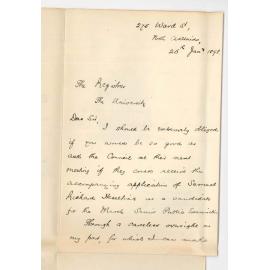 275 Ward St,
North Adelaide,
25th Jany 1898
The Registrar
The University
Dear Sir,
I should be extremely obliged
if you would be so good as
ask the Council at their next
meeting if they could receive the
accompanying application of Samuel
Richard as a candidate
for the March Senior Public Examination
Through a careless oversight on
my part, for which I can make